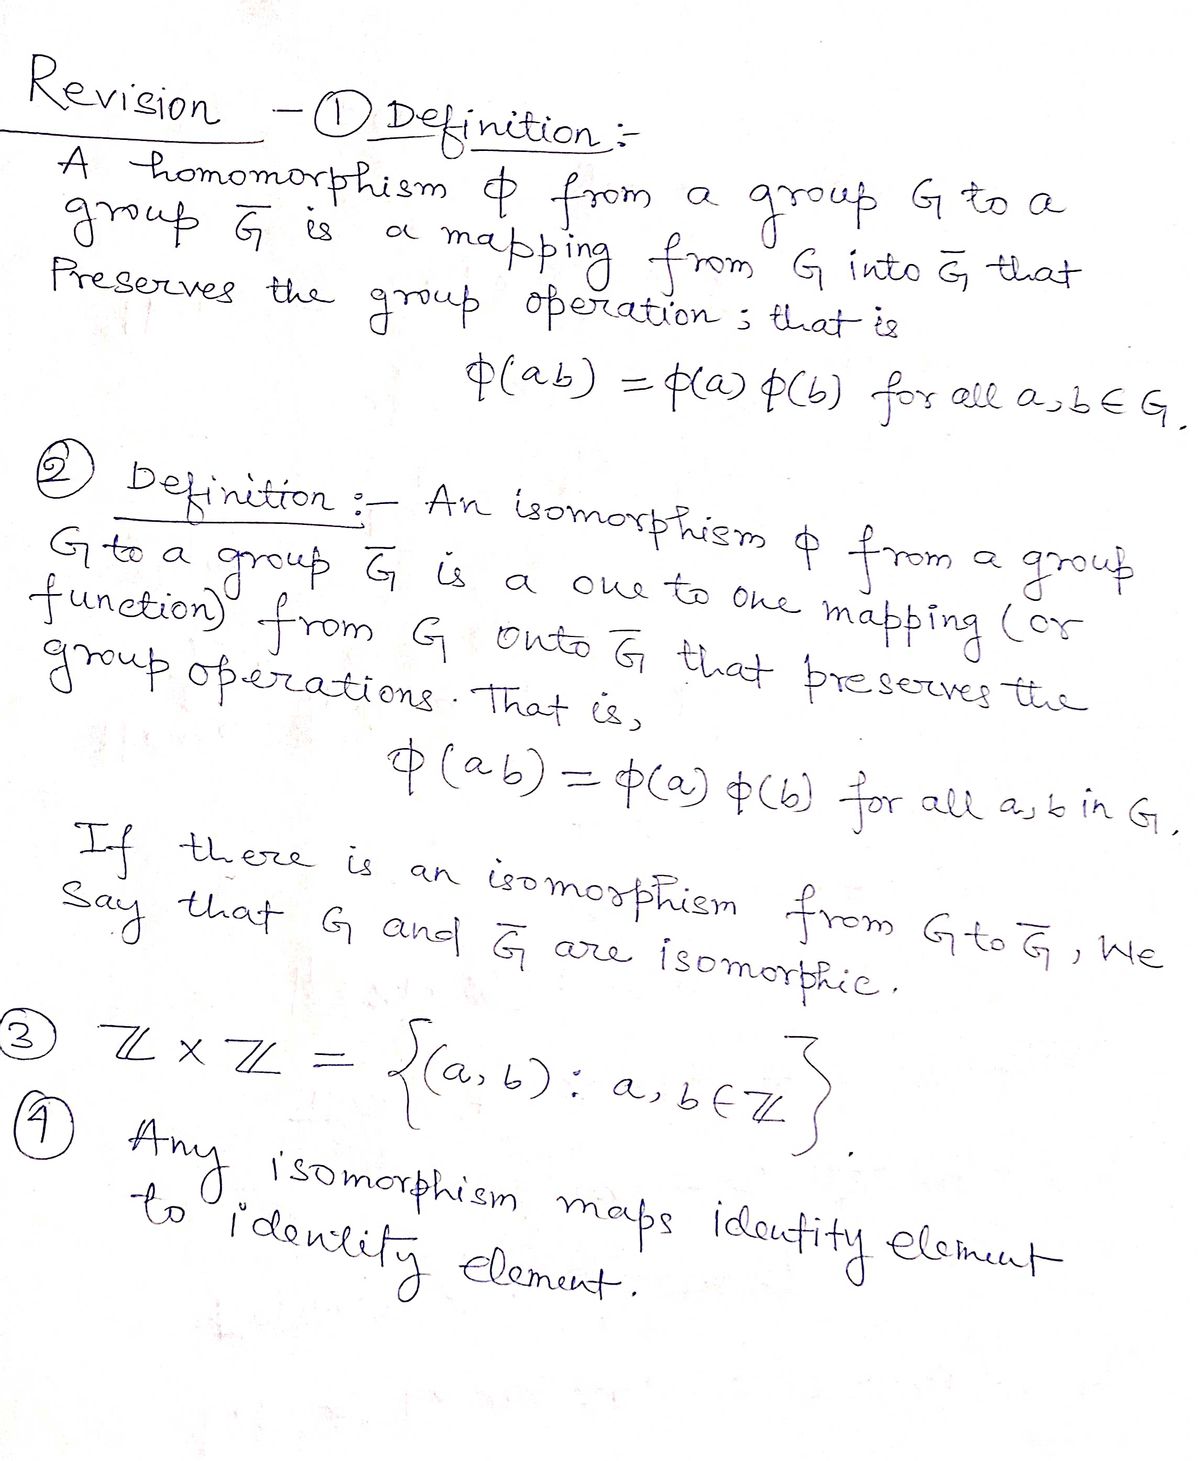 Revision - ① Definition :-
A homomorphism ϕ from a group G to a
group G̅ is a mapping from G into G̅ that
Preserves the group operation ; that is
ϕ(ab) = ϕ(a) ϕ(b) for all a, b ∈ G.
② Definition :- An isomorphism ϕ from a group
G to a group G̅ is a one to one mapping (or
function) from G onto G̅ that preserves the
group operations. That is,
ϕ(ab) = ϕ(a) ϕ(b) for all a, b in G.
If there is an isomorphism from G to G̅, We
Say that G and G̅ are isomorphic.
③ ℤ × ℤ = {(a, b) : a, b ∈ ℤ}.
④ Any isomorphism maps identity element
to identity element.